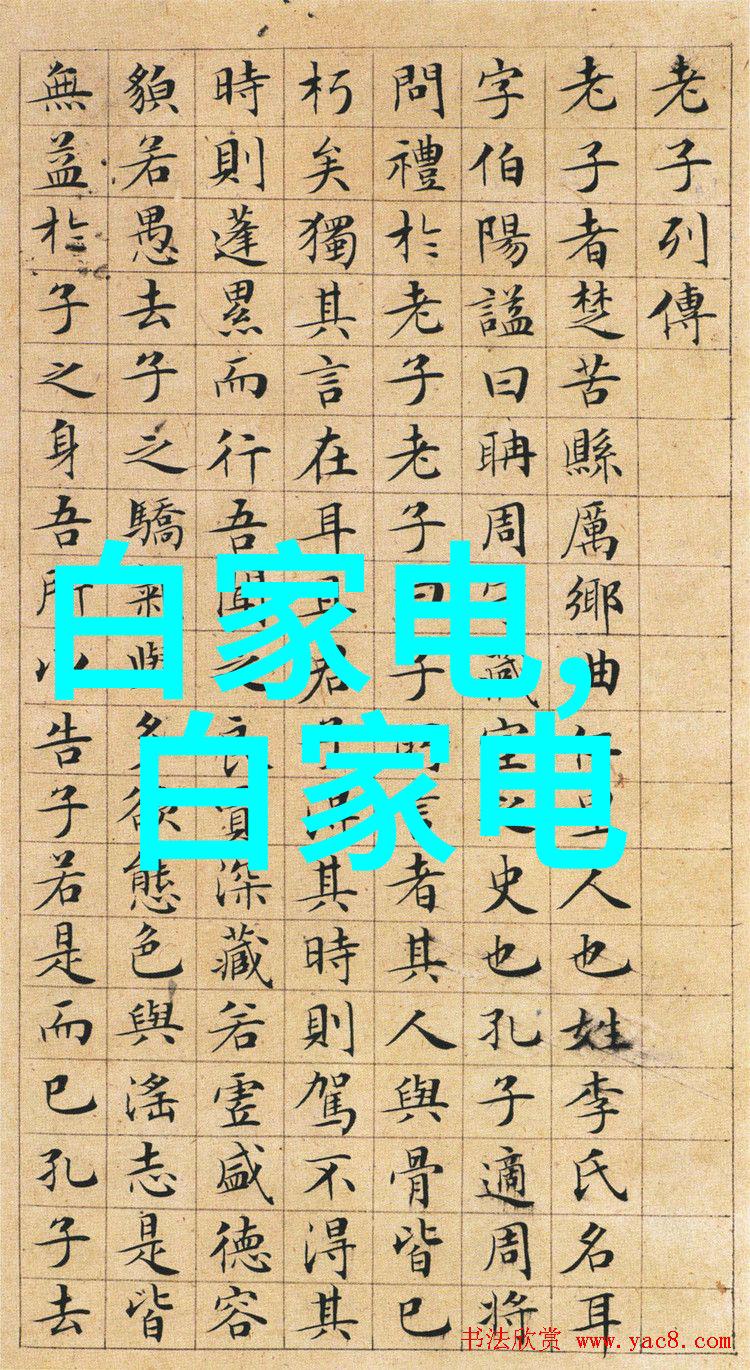 老子列傳
老子者楚苦縣厲鄉曲人也姓李氏名耳
字伯陽謚曰聃周藏室史也孔子適周將
問禮於老子老子曰子言者其人與骨皆已
朽矣獨其言在耳且君子得其時則駕不得其
時則蓬累而行吾聞之良賈深�若虛盛德容
貌若愚去子之驕氣與多欲態色與淫志是皆
無益於子之身吾所以告子若是而已孔子去
白家电,
白家电
书法欣赏 www.yac8.com